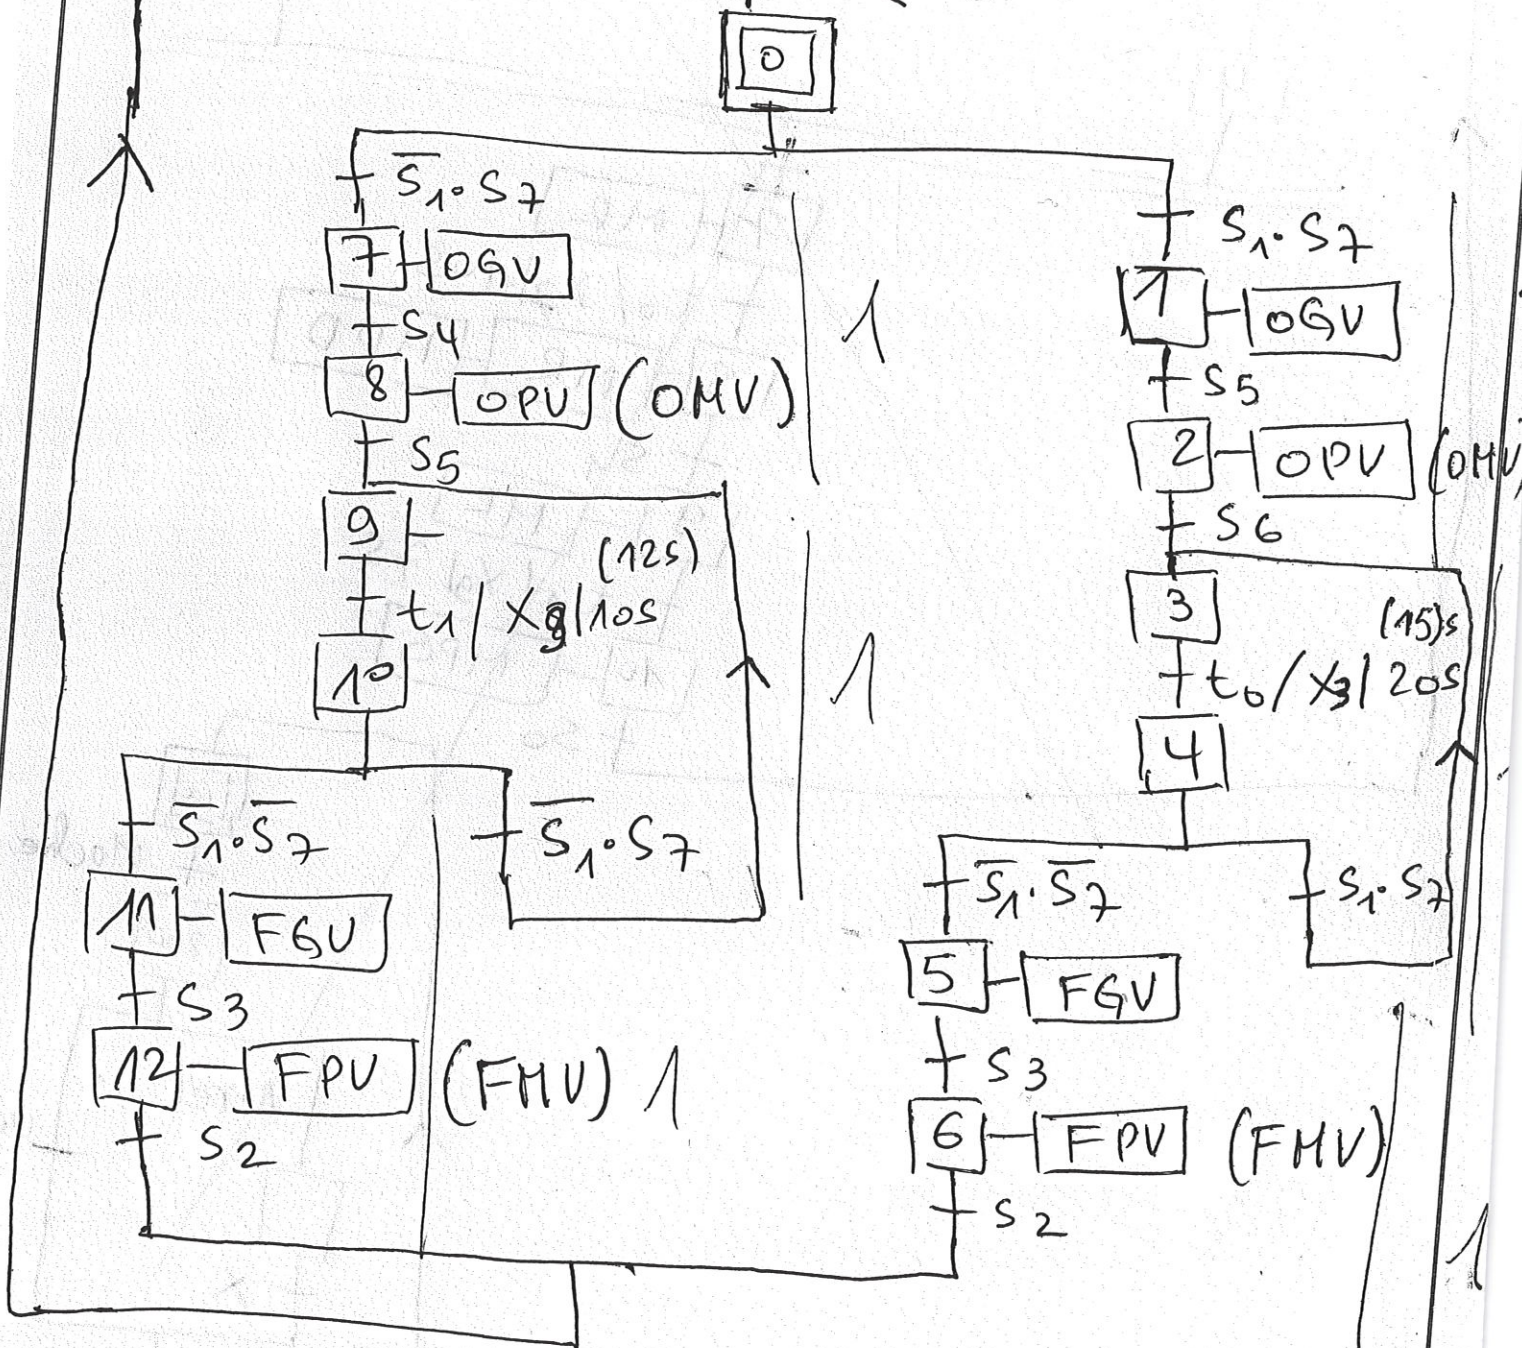 0
S̅₁·S7
7 OGV
S4
8 OPV (OMV)
S5
9
(12s)
t₁/X9/10s
10
S̅₁·S̅7
S̅₁·S7
11 FGV
S3
12 FPV (FMV) 1
S2
1
1
S₁·S7
1 OGV
S5
2 OPV (OMV)
S6
3
(15)s
t₀/X3/20s
4
S̅₁·S̅7
S₁·S7
5 FGV
S3
6 FPV (FMV)
S2
1